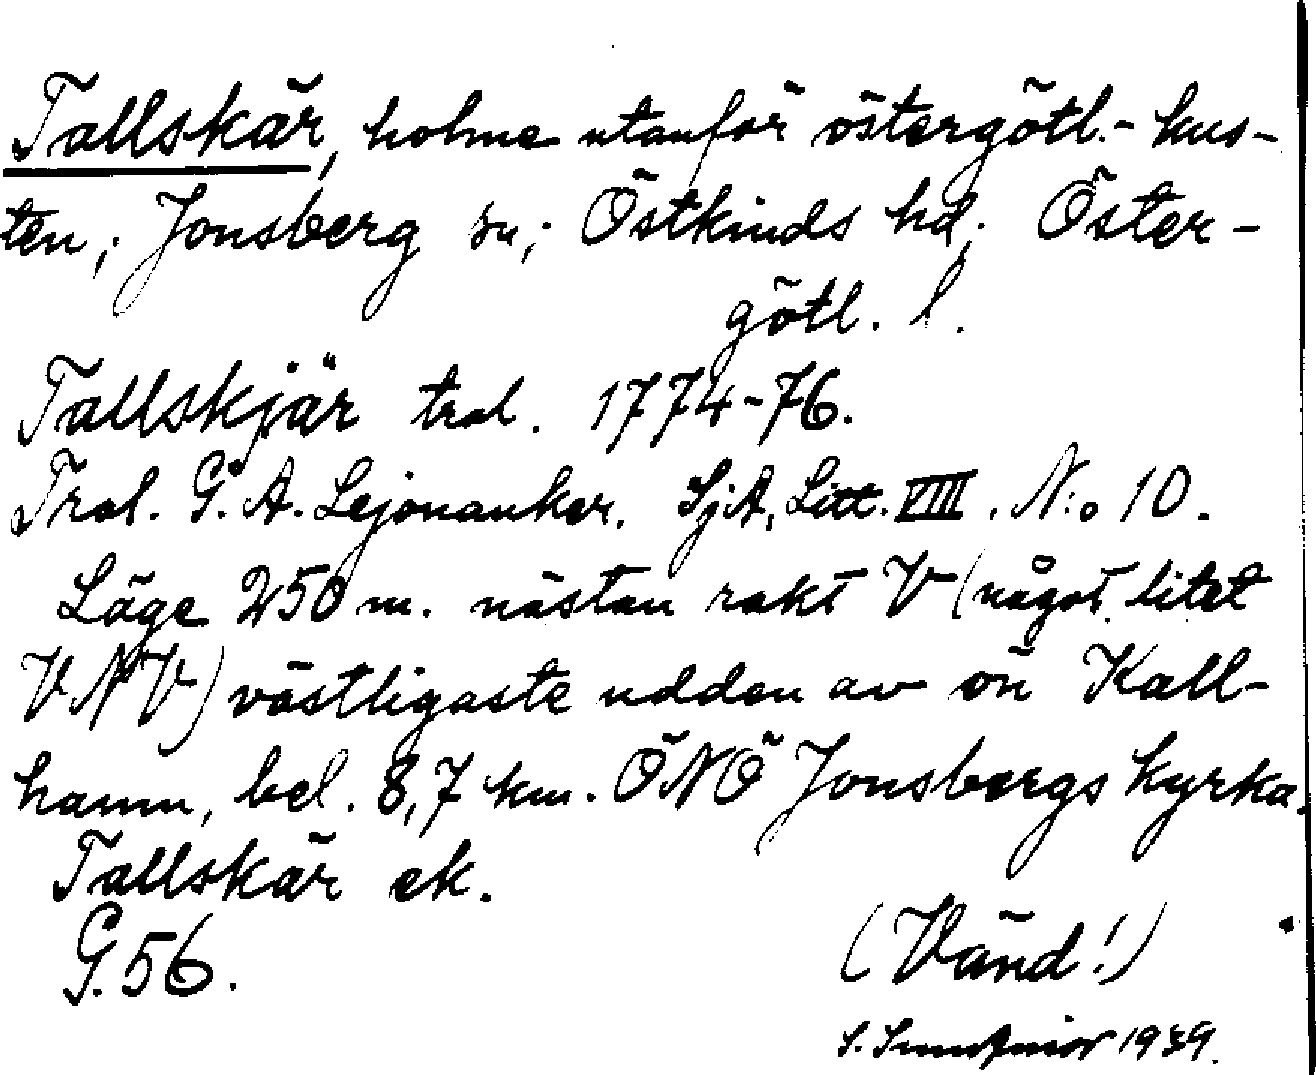 Tallskär, holme utanför östergötl.- kus-
ten; Jonsberg sn; Östkinds hd; Öster-
götl. l.
Tallskjär trol. 1774-76.
Trol. G. A. Lejonanker. SjA, Litt. VIII. N:o 10.
Läge 250 m. nästan rakt V (något litet
VNV) västligaste udden av ön Kall-
hamn, bel. 8,7 km. ÖNÖ Jonsbergs kyrka.
Tallskär ek.
G. 56.
(Vänd!)
S. 1939.